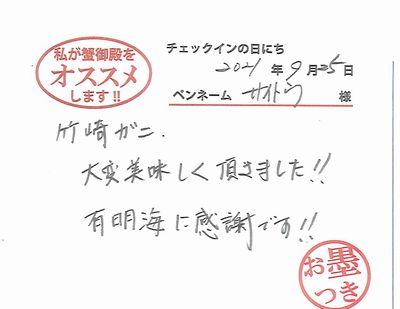 私が蟹御殿を
オススメ
します!!
チェックインの日にち
2021年9月25日
ペンネーム サイトウ 様
竹崎ガニ.
大変美味しく頂きました!!
有明海に感謝です!!
お墨
つき